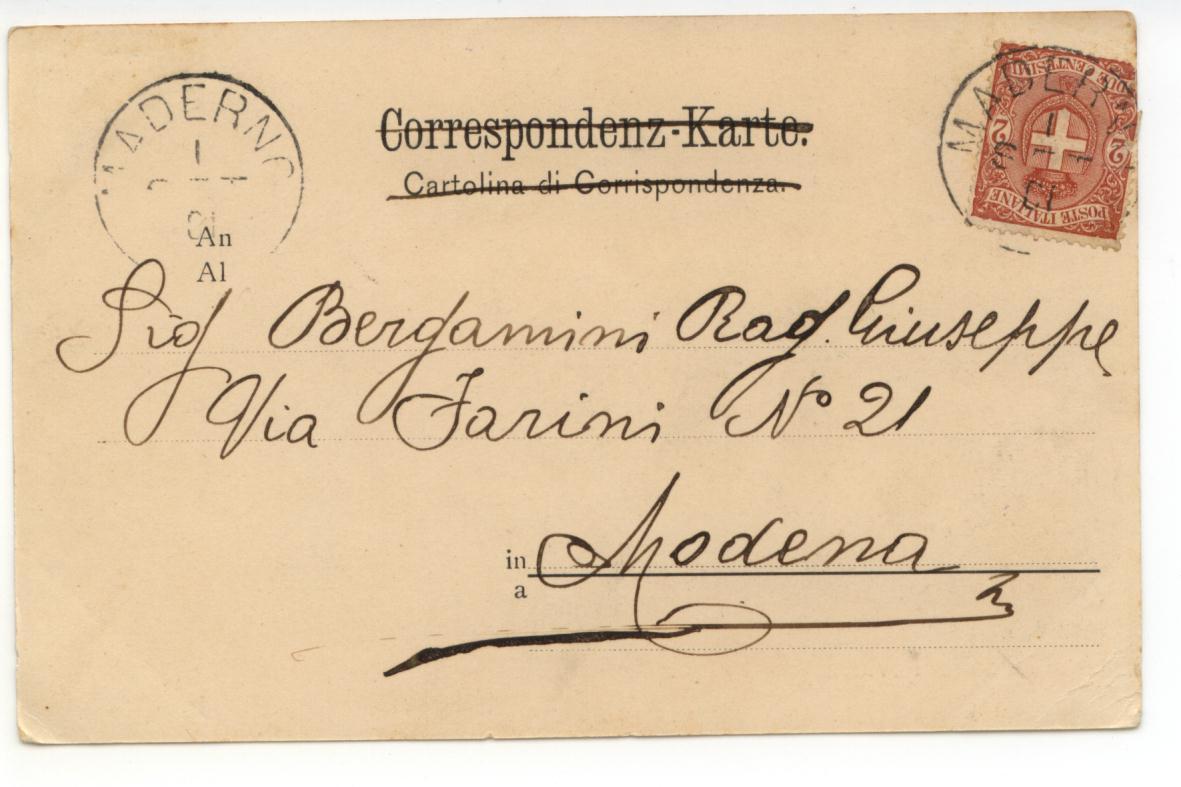 MADERNO
1
01
Correspondenz-Karte.
Cartolina di Corrispondenza.
MADERN
1
01
DUE CENTESIMI
2 2
POSTE ITALIANE
An
Al
Sig Bergamini Rag. Giuseppe
Via Farini Nº 21
in Modena
a